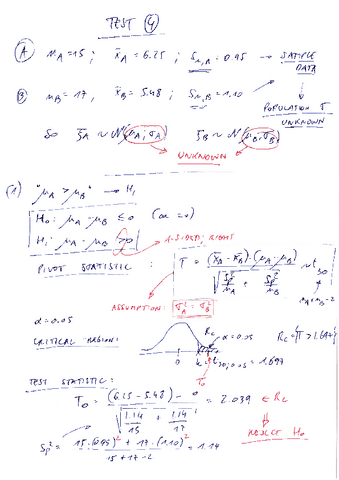 TEST 4
A n_A = 15 ; x̄_A = 6.25 ; S_{n,A} = 0.95 → SAMPLE DATA
B n_B = 17 , x̄_B = 5.48 ; S_{n,B} = 1.10
POPULATION σ UNKNOWN
SO ξ_A ~ N(μ_A, σ_A) ξ_B ~ N(μ_B, σ_B)
UNKNOWN
(1) "μ_A > μ_B" → H_1
H_0: μ_A - μ_B ≤ 0 (or =0)
H_1: μ_A - μ_B > 0
1-SIDED, RIGHT
PIVOT STATISTIC : T = (x̄_A - x̄_B) - (μ_A - μ_B) / √(Sp²/n_A + Sp²/n_B) ~ t_30
n_A + n_B - 2
ASSUMPTION: σ²_A = σ²_B
α = 0.05
CRITICAL REGION: R_C α = 0.05 R_C = {T > 1.697}
0 t_{30, 0.05} = 1.697
T_0
TEST STATISTIC:
T_0 = (6.25 - 5.48) - 0 / √(1.14/15 + 1.14/17) = 2.039 ∈ R_C
REJECT H_0
Sp² = 15·(0.95)² + 17·(1.10)² / 15 + 17 - 2 = 1.14